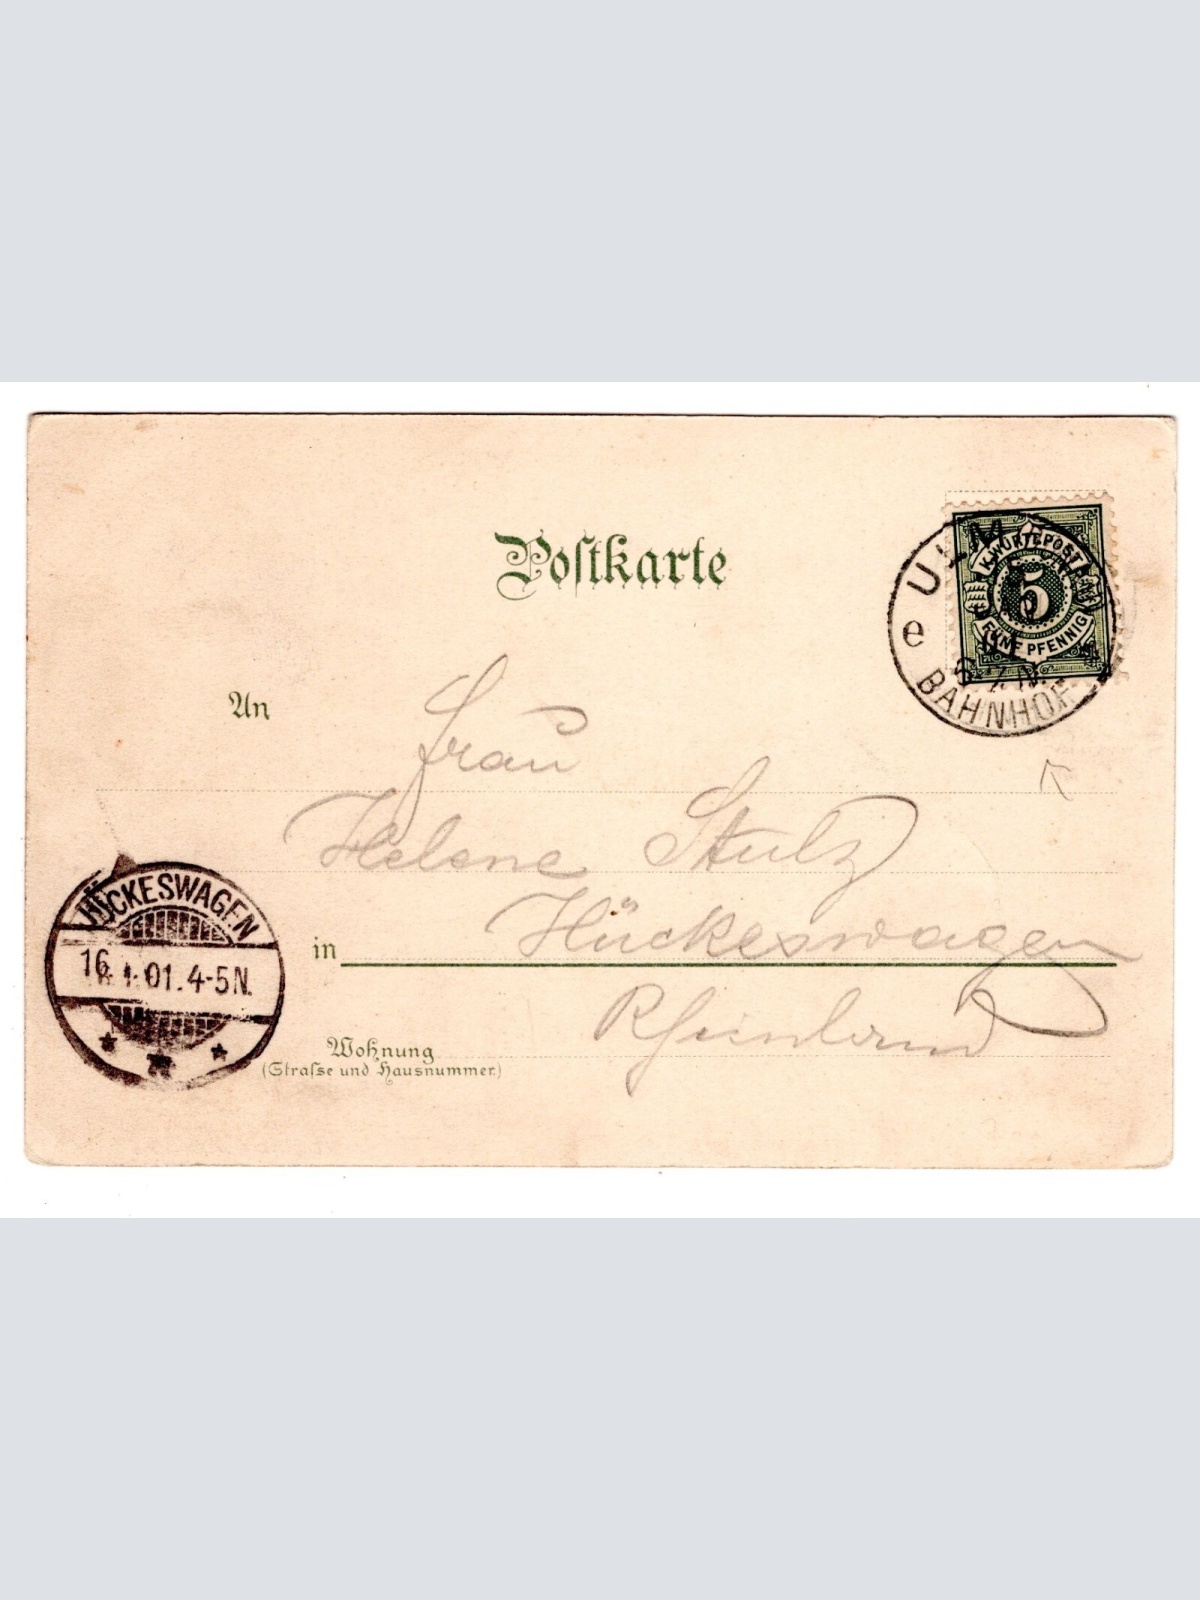 Postkarte
K. WÜRTT. POST
5
FÜNF PFENNIG
ULM
e
01
BAHNHOF
An
Frau
Helene Stulz
in Hückeswagen
Rheinland
Wohnung
(Straſse und Hausnummer.)
HÜCKESWAGEN
16. 1. 01. 4-5N.